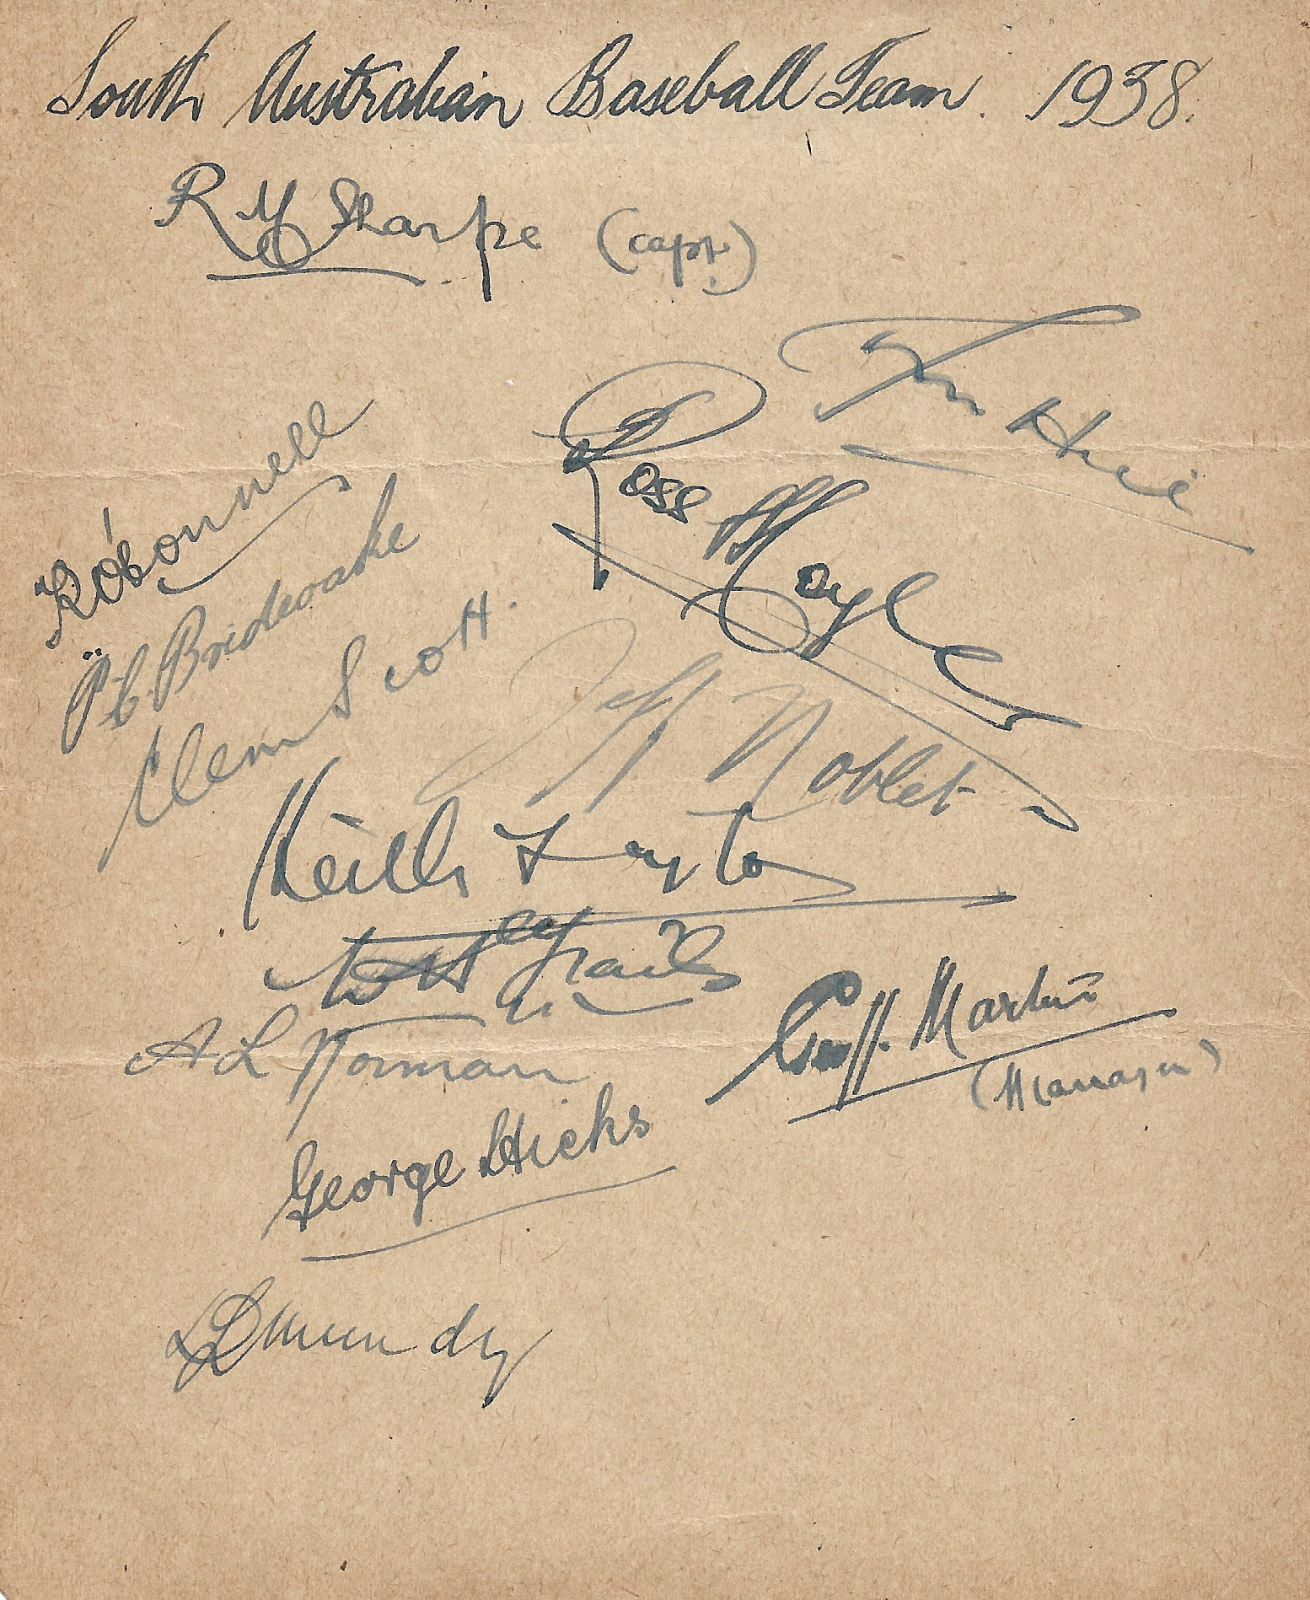 South Australian Baseball Team. 1938.
R M Sharpe (capt.)
Ross Moyle
K O'Connell
P. C. Brideoake
Clem Scott.
Jeff Noblet
Keith Layton
A L Norman
Geoff. Martin
(Manager)
George Hicks
L Dmundy